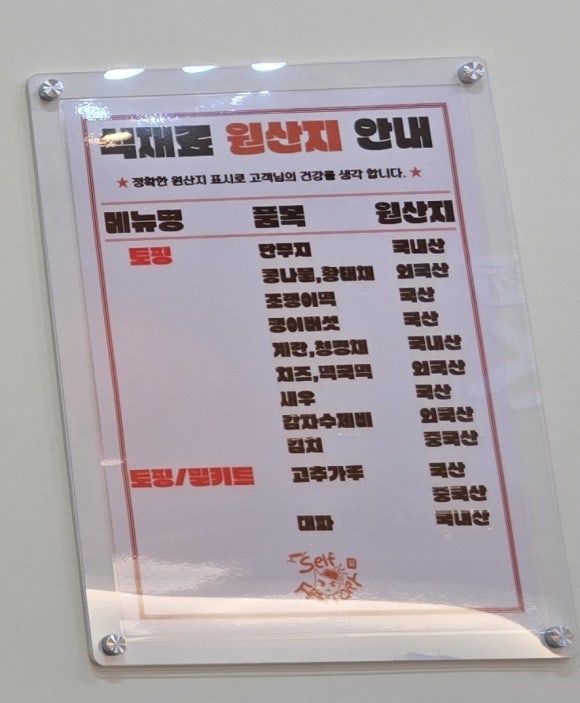 식재료 원산지 안내
★정확한 원산지 표시로 고객님의 건강을 생각 합니다.★
메뉴명 품목 원산지
토핑 단무지 국내산
콩나물,황태채 외국산
조랭이떡 국산
팽이버섯 국산
계란,청경채 국내산
치즈,떡국떡 외국산
새우 국산
감자수제비 외국산
김치 중국산
토핑/밀키트 고추가루 국산
중국산
대파 국내산
Self